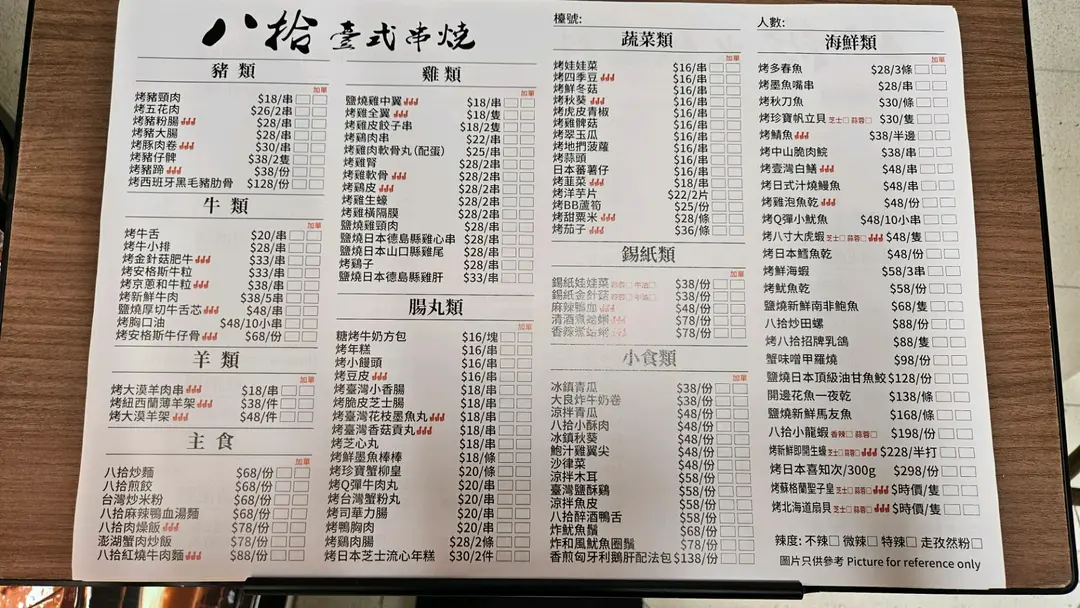 八拾 臺式串燒
豬類
加單
烤豬頸肉 $18/串
烤五花肉 $26/2串
烤豬粉腸 $28/串
烤豬大腸 $28/串
烤豚肉卷 $30/串
烤豬仔髀 $38/2隻
烤豬蹄 $38/份
烤西班牙黑毛豬肋骨 $128/份
牛類
加單
烤牛舌 $20/串
烤牛小排 $28/串
烤金針菇肥牛 $33/串
烤安格斯牛粒 $33/串
烤京蔥和牛粒 $38/串
烤新鮮牛肉 $38/5串
鹽燒厚切牛舌芯 $48/串
烤胸口油 $48/10小串
烤安格斯牛仔骨 $68/份
羊類
加單
烤大漠羊肉串 $18/串
烤紐西蘭薄羊架 $38/件
烤大漠羊架 $48/件
主食
加單
八拾炒麵 $68/份
八拾煎餃 $68/份
台灣炒米粉 $68/份
八拾麻辣鴨血湯麵 $68/份
八拾肉燥飯 $78/份
澎湖蟹肉炒飯 $78/份
八拾紅燒牛肉麵 $88/份
雞類
加單
鹽燒雞中翼 $18/串
烤雞全翼 $18/隻
烤雞皮餃子串 $18/2隻
烤鷄肉串 $22/串
烤雞肉軟骨丸(配蛋) $25/串
烤雞腎 $28/2串
烤雞軟骨 $28/2串
烤鷄皮 $28/2串
烤雞生蠔 $28/2串
烤雞橫隔膜 $28/2串
鹽燒雞頸肉 $28/串
鹽燒日本德島縣雞心串 $28/串
鹽燒日本山口縣雞尾 $28/串
烤鷄子 $28/串
鹽燒日本德島縣雞肝 $33/串
腸丸類
加單
糖烤牛奶方包 $16/塊
烤年糕 $16/串
烤小饅頭 $16/串
烤豆皮 $16/串
烤臺灣小香腸 $18/串
烤脆皮芝士腸 $18/串
烤臺灣花枝墨魚丸 $18/串
烤臺灣香菇貢丸 $18/串
烤芝心丸 $18/串
烤鮮墨魚棒棒 $18/條
烤珍寶蟹柳皇 $20/條
烤Q彈牛肉丸 $20/串
烤台灣蟹粉丸 $20/串
烤司華力腸 $20/串
烤鴨胸肉 $20/串
烤鷄肉腸 $28/2條
烤日本芝士流心年糕 $30/2件
檯號:
蔬菜類
加單
烤娃娃菜 $16/串
烤四季豆 $16/串
烤鮮冬菇 $16/串
烤秋葵 $16/串
烤虎皮青椒 $16/串
烤雞髀菇 $16/串
烤翠玉瓜 $16/串
烤地捫菠蘿 $16/串
烤蒜頭 $16/串
日本蕃薯仔 $16/串
烤韮菜 $18/串
烤洋芋片 $22/2片
烤BB蘆筍 $25/份
烤甜粟米 $28/條
烤茄子 $36/條
錫紙類
加單
錫紙娃娃菜 蒜蓉□牛油□ $38/份
錫紙金針菇 蒜蓉□牛油□ $38/份
麻辣鴨血 $48/份
清酒煮蛤蜊 $78/份
香辣煮蛤蜊 $78/份
小食類
加單
冰鎮青瓜 $38/份
大良炸牛奶卷 $38/份
涼拌青瓜 $48/份
八拾小酥肉 $48/份
冰鎮秋葵 $48/份
鮑汁雞翼尖 $48/份
沙律菜 $48/份
涼拌木耳 $58/份
臺灣鹽酥鷄 $58/份
涼拌魚皮 $58/份
八拾醉酒鴨舌 $58/份
炸魷魚鬚 $68/份
炸和風魷魚圈鬚 $78/份
香煎匈牙利鵝肝配法包 $138/份
人數:
海鮮類
加單
烤多春魚 $28/3條
烤墨魚嘴串 $28/串
烤秋刀魚 $30/條
烤珍寶帆立貝 芝士□ 蒜蓉□ $30/隻
烤鯖魚 $38/半邊
烤中山脆肉皖 $38/串
烤壹灣白鱔 $48/串
烤日式汁燒鰻魚 $48/串
烤雞泡魚乾 $48/份
烤Q彈小魷魚 $48/10小串
烤八寸大虎蝦 芝士□ 蒜蓉□ $48/隻
烤日本鱈魚乾 $48/份
烤鮮海蝦 $58/3串
烤魷魚乾 $58/份
鹽燒新鮮南非鮑魚 $68/隻
八拾炒田螺 $88/份
烤八拾招牌乳鴿 $88/隻
蟹味噌甲羅燒 $98/份
鹽燒日本頂級油甘魚鮫 $128/份
開邊花魚一夜乾 $138/條
鹽燒新鮮馬友魚 $168/條
八拾小龍蝦 香辣□ 蒜蓉□ $198/份
烤新鮮即開生蠔 芝士□ 蒜蓉□ $228/半打
烤日本喜知次/300g $298/份
烤蘇格蘭聖子皇 芝士□ 蒜蓉□ $時價/隻
烤北海道扇貝 芝士□ 蒜蓉□ $時價/隻
辣度: 不辣□ 微辣□ 特辣□ 走孜然粉□
圖片只供參考 Picture for reference only